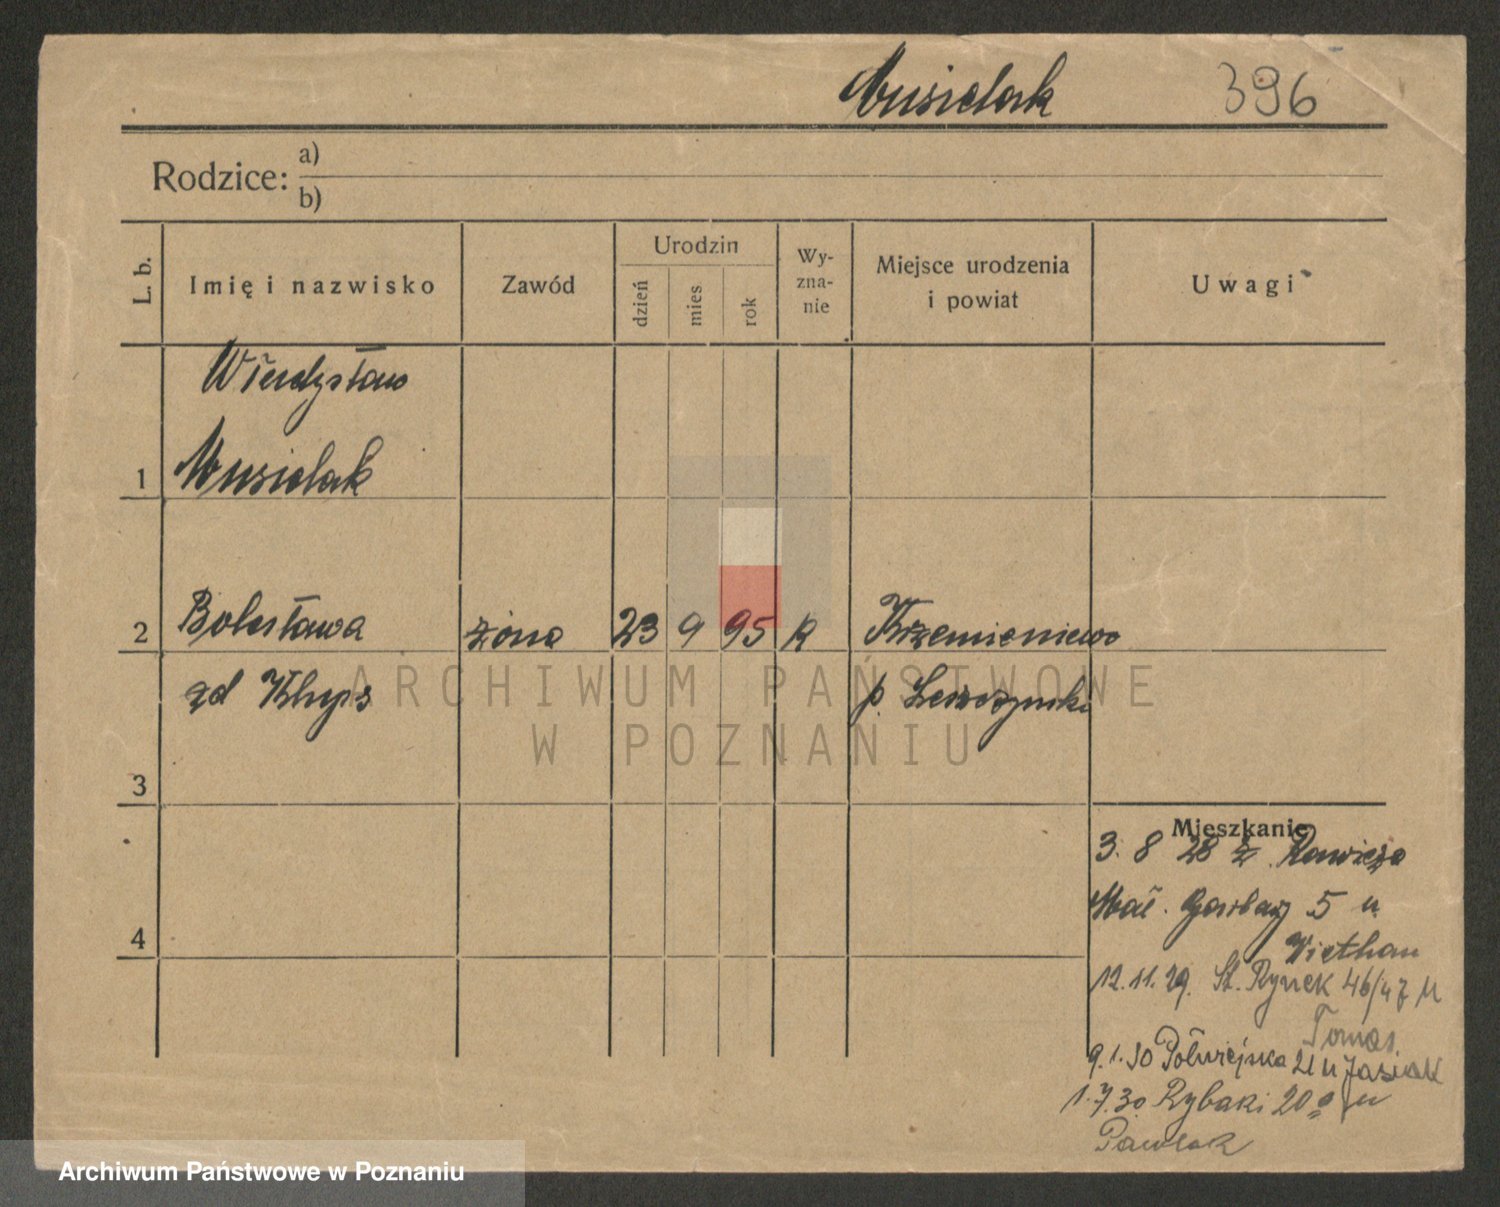 Musielak 396
Rodzice: a)
b)
L. b.
Imię i nazwisko
Zawód
Urodzin
dzień
mies
rok
Wy-
zna-
nie
Miejsce urodzenia
i powiat
Uwagi
Władysław
1 Musielak
2 Bolesława żona 23 9 95 R Krzemieniewo
zd p. Leszczyński
3
4
Mieszkanie
3. 8 28 z Rawicza
Mał. Garbary 5 u
Viethau
12.11.29. St. Rynek 46/47 u
Tomas
9.1.30 Półwiejska 21 u Jasiak
1.7.30 Rybaki 20a u
Pawlak
ARCHIWUM PAŃSTWOWE
W POZNANIU
Archiwum Państwowe w Poznaniu